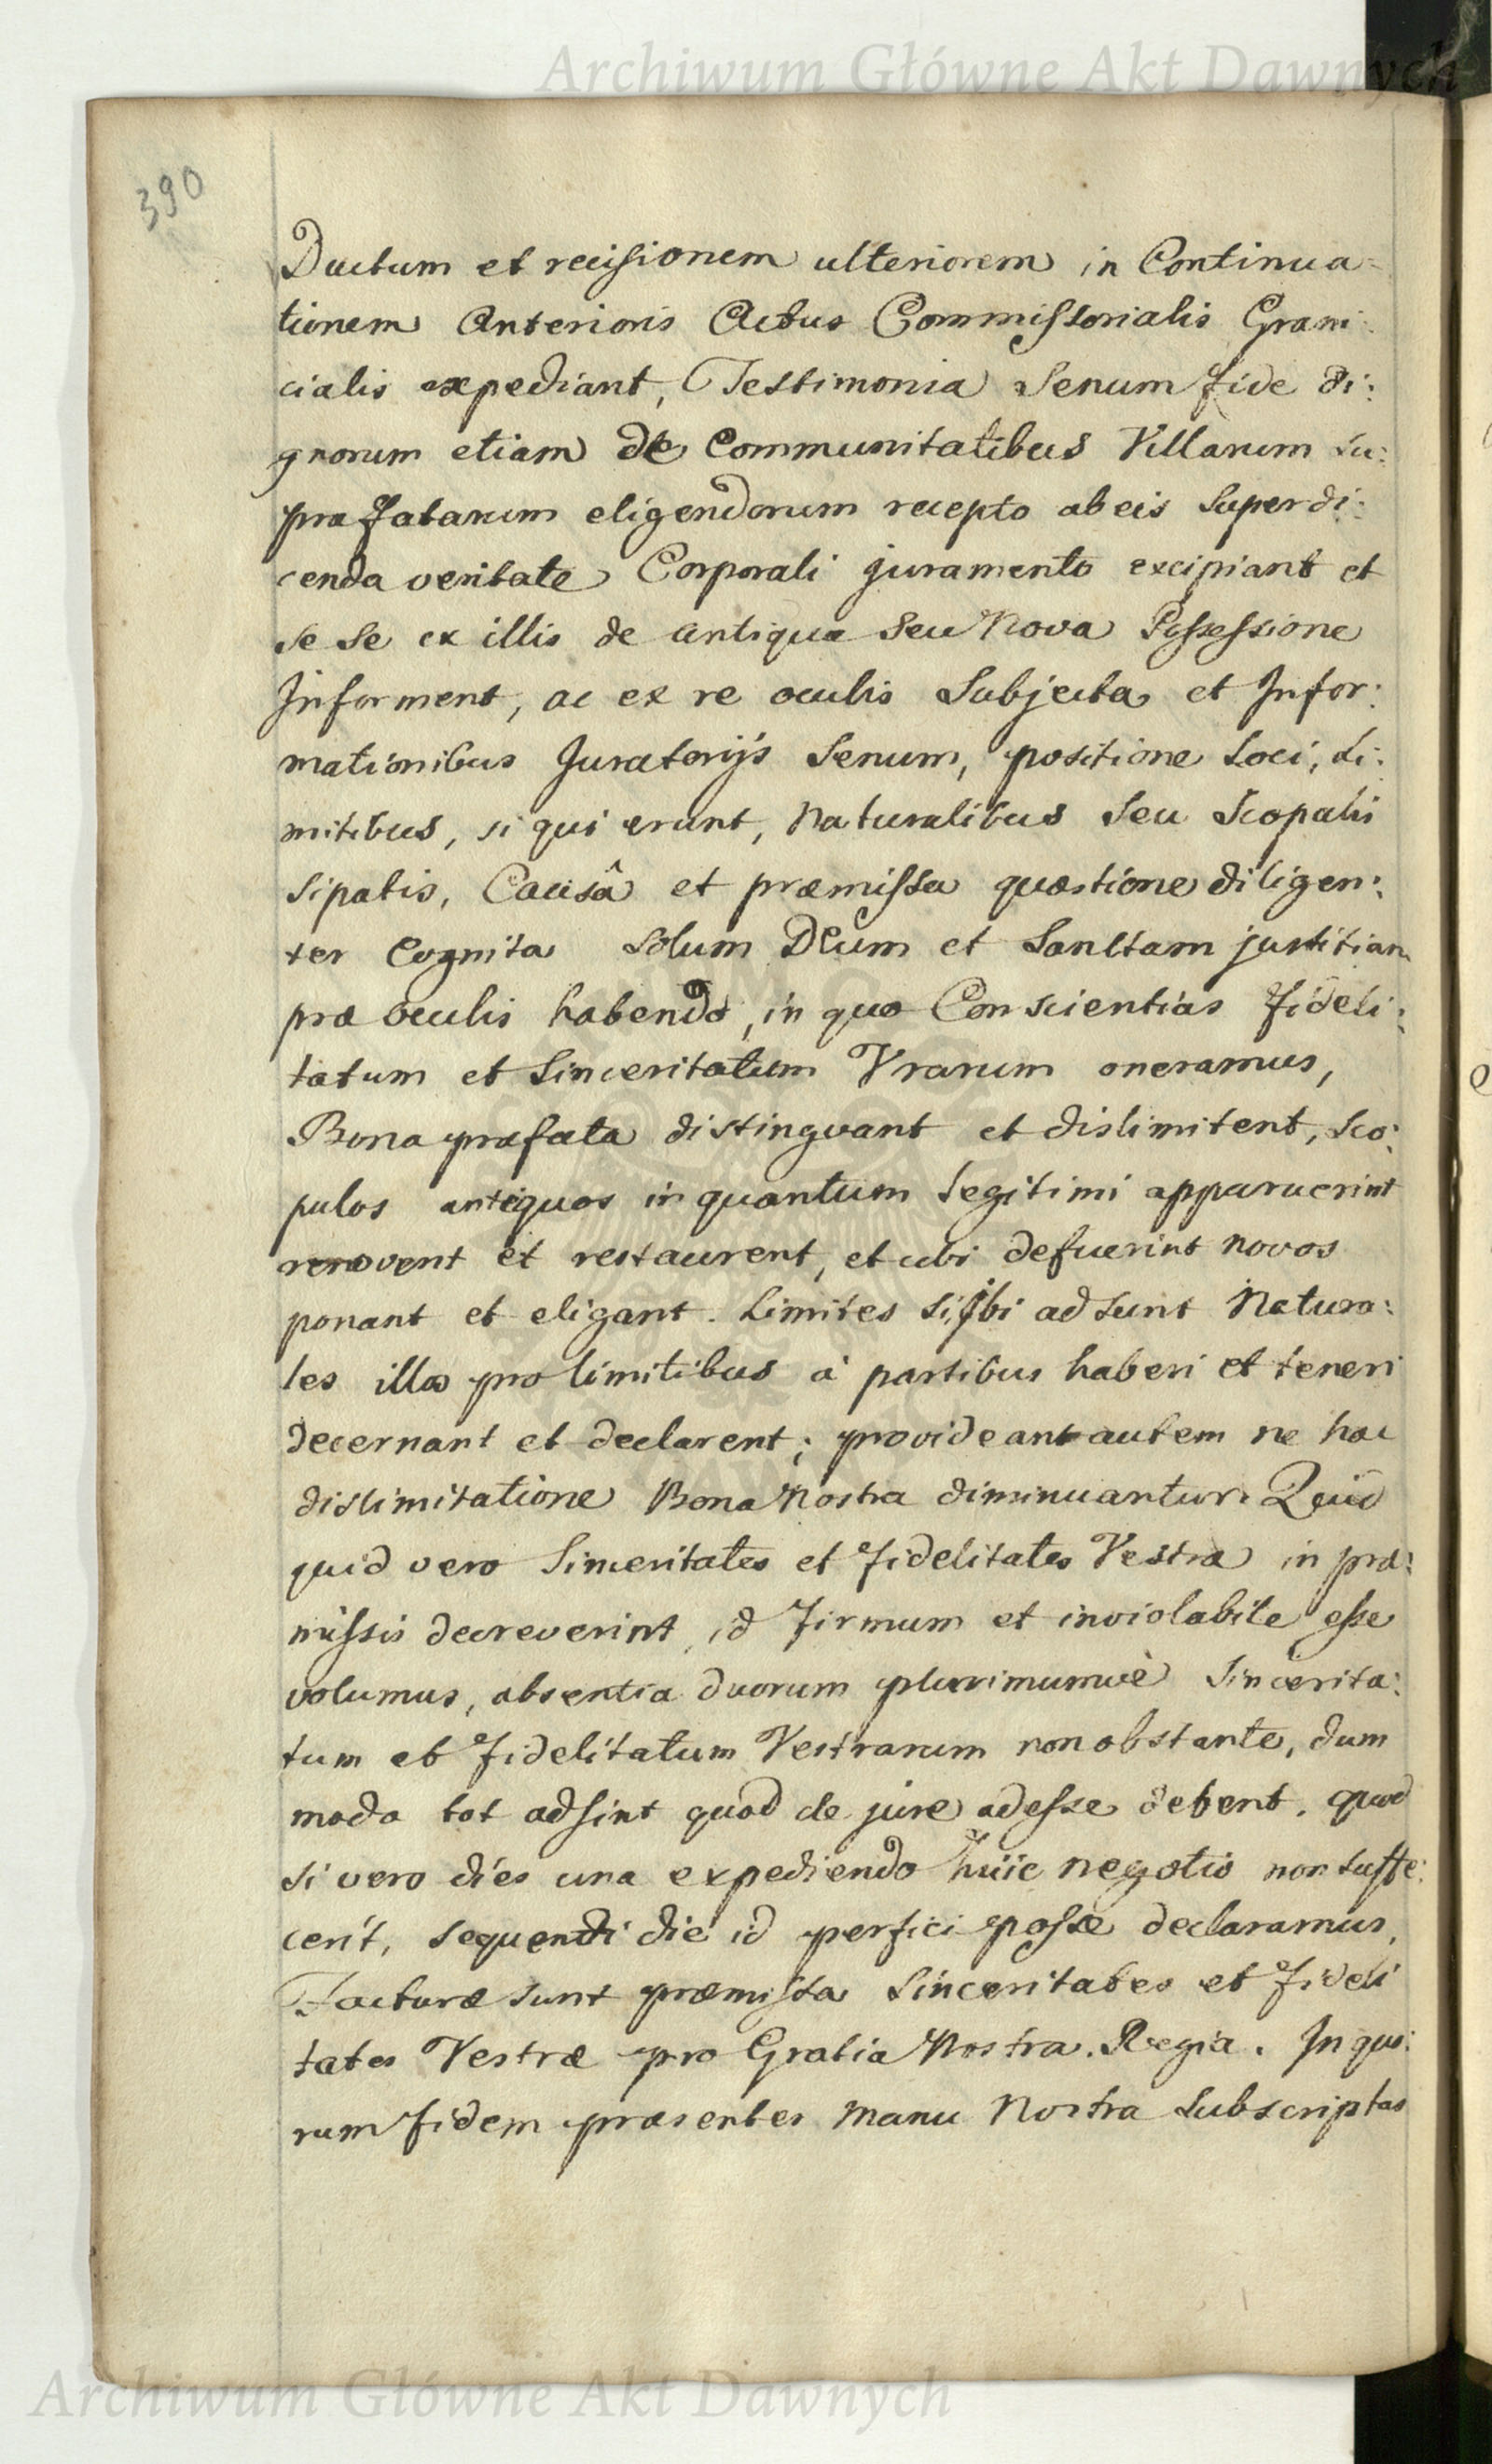 Archiwum Główne Akt Dawnych
390
Ductum et recisionem ulteriorem in Continua=
tionem Anterioris Actus Commissorialis Grani:
cialis expediant, Testimonia Senum fide di:
gnorum etiam de Communitatibus Villarum su:
præfatarum eligendorum recepto ab eis super di:
cenda veritate Corporali juramento excipiant et
se se ex illis de antiqua seu Nova Possessione
Informent, ac ex re oculis Subjecta et Infor:
mationibus Juratorijs Senum, positione Loci, Li:
mitibus, si qui erunt, Naturalibus seu Scopalis
sipatis, Causâ et præmissa quæstione diligen:
ter Cognita solum Deum et Sanctam justitiam
præ oculis habendo, in quo Conscientias Fideli:
tatum et Sinceritatum Vrarum oneramus,
Bona præfata distingvant et dislimitent, Sco:
pulos antiquos in quantum Legitimi apparuerint
renovent et restaurent, et ubi defuerint novos
ponant et eligant. Limites si ibi adsunt Natura:
les illos pro limitibus à partibus haberi et teneri
decernant et declarent; provideant autem ne hac
dislimitatione Bona Nostra diminuantur. Quid
quid vero Sinceritates et Fidelitates Vestræ in præ:
missis decreverint, id Firmum et inviolabile esse
volumus, absentia duorum plurimumvè Sincerita:
tum et Fidelitatum Vestrarum non obstante, dum
modo tot adsint quod de jure adesse debent. quod
si vero dies una expediendo huic negotio non suffe:
cerit, sequenti die id perfici posse declaramus,
Facturæ sunt præmissa Sinceritates et Fideli
tates Vestræ pro Gratia Nostra Regia. In quo:
rum fidem præsentes Manu Nostra Subscriptas
Archiwum Główne Akt Dawnych